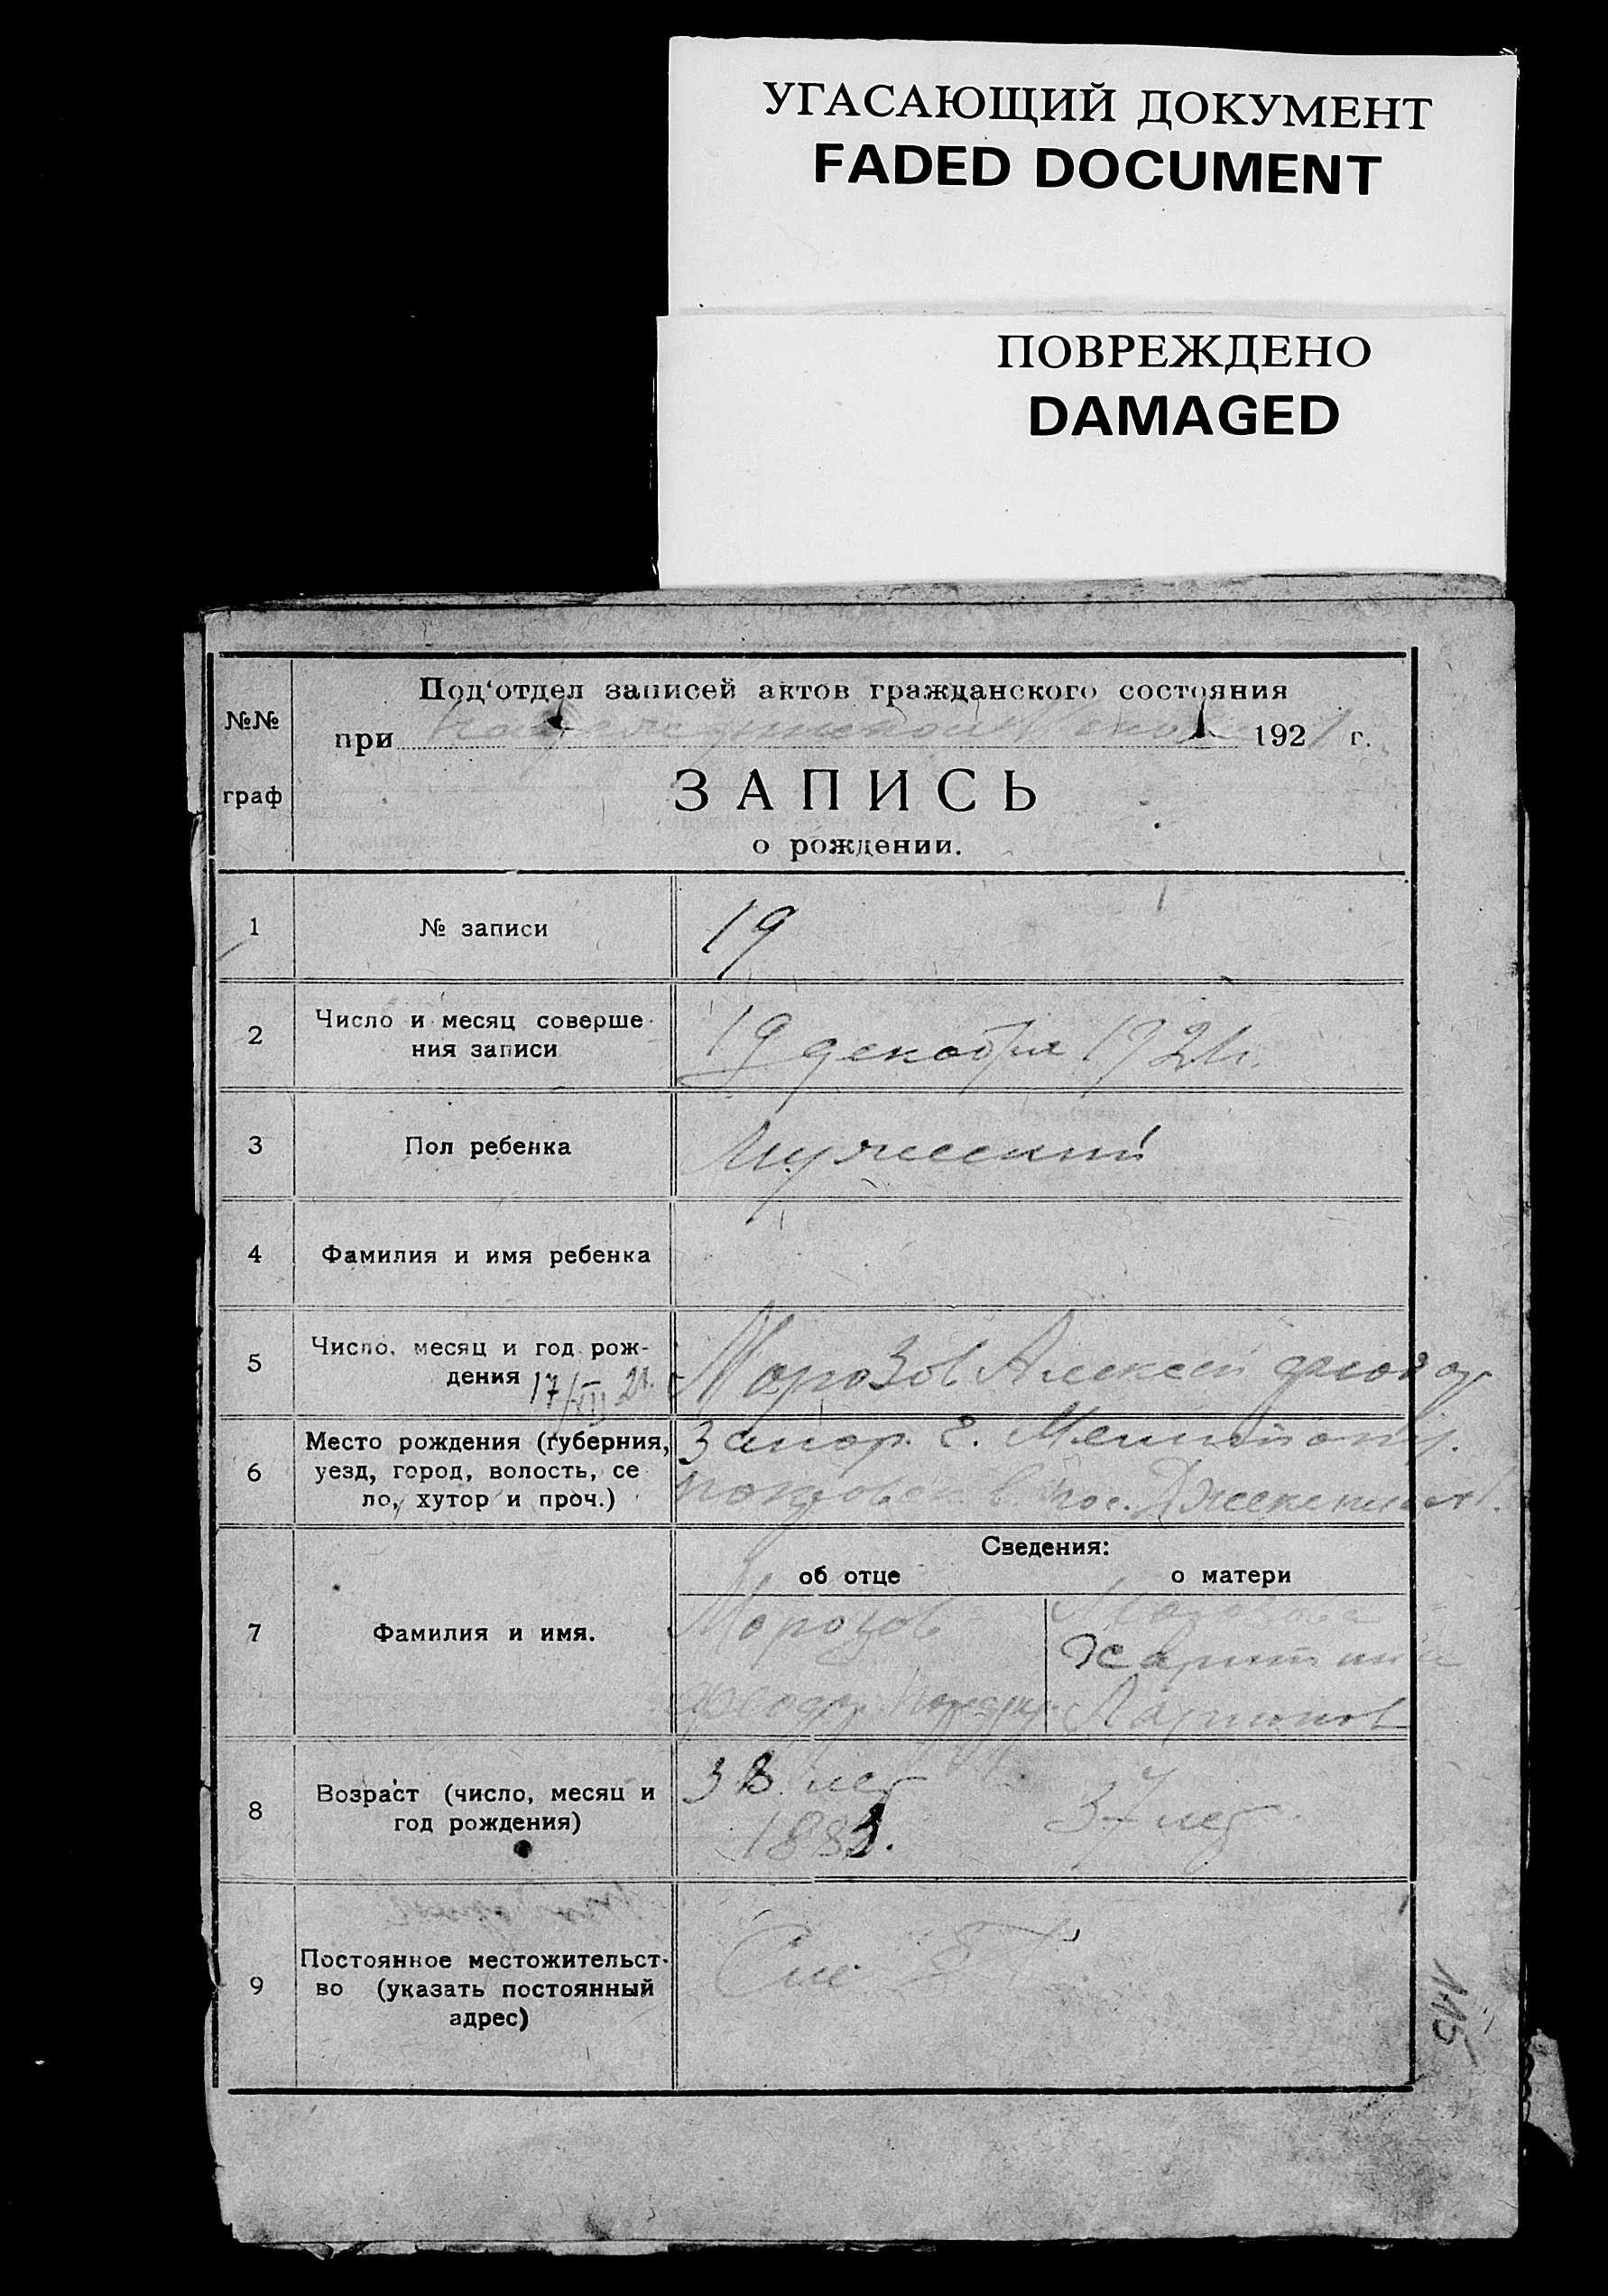 УГАСАЮЩИЙ ДОКУМЕНТ
FADED DOCUMENT
ПОВРЕЖДЕНО
DAMAGED
№№
граф
Под‘отдел записей актов гражданского состояния
при 1921 г.
ЗАПИСЬ
о рождении.
1 № записи 19
2 Число и месяц соверше-
ния записи 19 декабря 1921 г.
3 Пол ребенка Мужеский
4 Фамилия и имя ребенка
5 Число, месяц и год рож-
дения 17/XII 21. Морозов Алексей феодор
6 Место рождения (губерния,
уезд, город, волость, се
ло, хутор и проч.)
Запор. г. Мелитопу.
покровск в пос.
Сведения:
об отце о матери
7 Фамилия и имя.
Морозов
Харитина
8 Возраст (число, месяц и
год рождения)
38 лет 37 лет
1883.
9 Постоянное местожительст-
во (указать постоянный
адрес)
См. 6
115